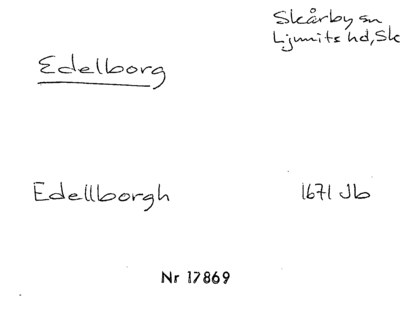 Skårby sn
Ljunits hd, Sk
Edelborg
Edellborgh 1671 Jb
Nr 17869